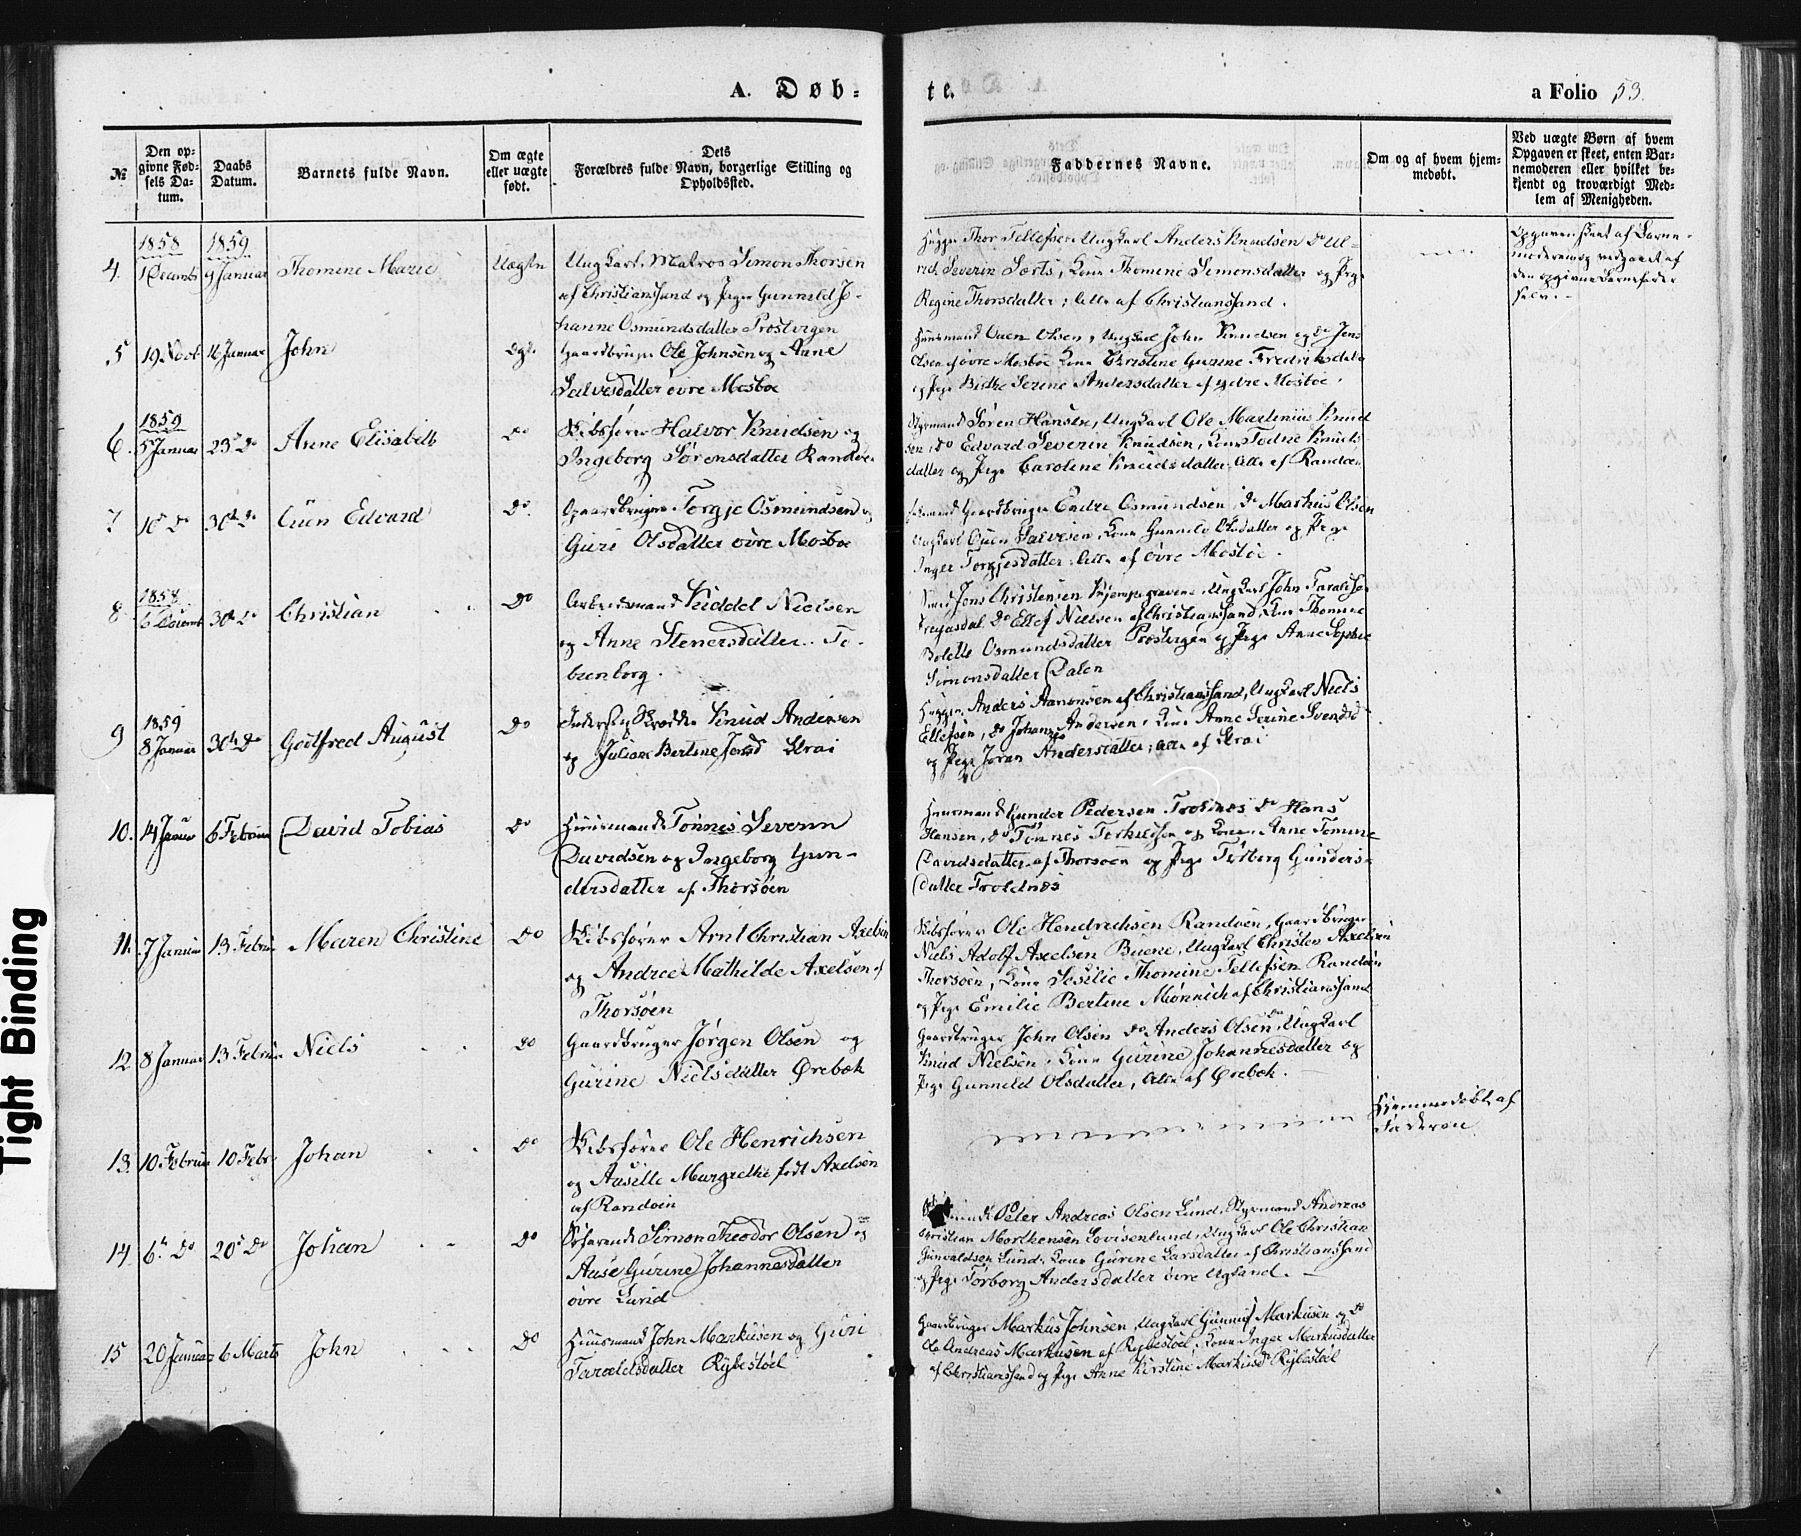 A. Døb-
te.
a Folio 53.
№
Den op-
givne Fød-
sels Da-
tum.
Daabs
Datum.
Barnets fulde Navn.
Om ægte
eller uægte
født.
Dets
Forældres fulde Navn, borgerlige Stilling og
Opholdssted.
Faddernes Navne.
Om og af hvem hjem-
medøbt.
Ved uægte Børn af hvem
Opgaven er skeet, enten Bar-
nemoderen eller hvilket be-
kjendt og troværdigt Med-
lem af Menigheden.
4.
1858
1 Decemb
1859
9 Januar
Thomine Marie
Uægte
Ungkarl. Matros Simon Thorsen
af Christianssand og Pige Gunnild Jo-
hanne Osmundsdatter Prostvigen
Thor Tellefsen Ungkarl Anders Knudsen Do
Severin Kone Thomine Simonsdatter og Pige
Regine Thorsdatter; Alle af Christianssand.
Opgaven skeet af Barne-
moderen og vedgaaet af
den opgivne Barnefader
selv.
5
19 Novb
16 Januar
John
Ægte
Gaardbruger Ole Johnsen og Anne
Salvesdatter øvre Mosbøe
Huusmand Ouen Olsen, Ungkarl John Knudsen og Do Jens
Olsen af øvre Mosbøe Kone Christine Gurine Fredriksdatt
og Pige Birthe Serine Andersdatter af ydre Mosbøe.
6.
1859
5 Januar
23de Do
Anne Elisabeth
Do
Skibsfører Halvor Knudsen og
Ingeborg Sørensdatter Randøe
Styrmand Søren Hansen, Ungkarl Ole Martinius Knud
sen, Do Edvard Severin Knudsen, Kone Todne Knuds
datter og Pige Caroline Knudsdatter, Alle af Randøen
7
10 Do
30te Do
Ouen Edvard
Do
Gaardbruger Torgje Osmundsen og
Guri Olsdatter øvre Mosbøe
Gaardbruger Endre Osmundsen, Do Markus Olsen
Ungkarl Ouen Salvesen, Kone Gunnild Olsdatter og Pige
Inger Torgjesdatter. Alle af øvre Mosbøe.
8
1858
6 Decemb
30te Do
Christian
Do
Arbeidsmand Kiddel Nielsen
og Anne Stenersdatter. To-
bienborg.
Jens Christensen Kjempegravene, Ungkarl John Taraldsen
Do Ellef Nielsen af Christianssand, Kone Thomine
Bolette Osmundsdatter Prostvigen og Pige Anne Sophie
Simonsdatter Dalen
9
1859
8 Januar
30te Do
Godtfred August
Do
Inderst og Skrædder Knud Andersen
og Juliane Bertine Jensd Strai
Anders Aanonsen af Christianssand, Ungkarl Niels
Ellefsen, Do Johannes Andersen, Kone Anne Serine Svendsd
og Pige Joran Andersdatter; Alle af Strai
10.
14 Januar
6 Februar
David Tobias
Do
Huusmand Tønnes Severin
Davidsen og Ingeborg Gun-
dersdatter af Thorsøen
Huusmand Gunder Pedersen Troldnes Do Hans
Hansen, Do Tønnes Terkelsen og Kone Anne Tomine
Davidsdatter af Thorsøen og Pige Torberg Gunders-
datter Troldnes
11.
7 Januar
13 Februar
Maren Christine
Do
Skibsfører Arnt Christian Axelsen
og Andrea Mathilde Axelsen af
Thorsøen
Skibsfører Ole Hendrichsen Randøen, Gaardbruger
Niels Adolf Axelsen Buene, Ungkarl Christen Axelsen
Thorsøen, Kone Sesilie Thomine Tellefsen Randøen
og Pige Emilie Bertine Mønnich af Christianssand
12
8 Januar
13 Februar
Niels
Do
Gaardbruger Jørgen Olsen og
Gurine Nielsdatter Ørebæk
Gaardbruger John Olsen Do Anders Olsen, Ungkarl
Knud Nielsen, Kone Gurine Johannesdatter og
Pige Gunnild Olsdatter, Alle af Ørebæk.
13.
10 Februar
10 Febr
Johan
Do
Skibsfører Ole Henrichsen
og Aasille Margrethe født Axelsen
af Randøen
Hjemmedøbt af
Faderen
14.
6te Do
20de Do
Johan
Do
Søfarende Simon Theodor Olsen og
Aase Gurine Johannesdatter
øvre Lund
Peter Andreas Olsen Lund, Styrmand Andreas
Christian Morthensen Lovisenlund, Ungkarl Ole Christian
Gunvaldsen Lund, Kone Gurine Larsdatter af Christianssand
og Pige Torborg Andersdatter øvre Ugland.
15
20 Januar
6 Marts
John
Do
Huusmand John Markusen og Guri
Taraldsdatter Rybestøel
Gaardbruger Markus Johnsen, Ungkarl Gunnuf Markusen og Do
Ole Andreas Markusen af Rybestøel, Kone Inger Markusdatter
af Christianssand og Pige Anne Kirstine Markusd Rybestøel
Tight Binding